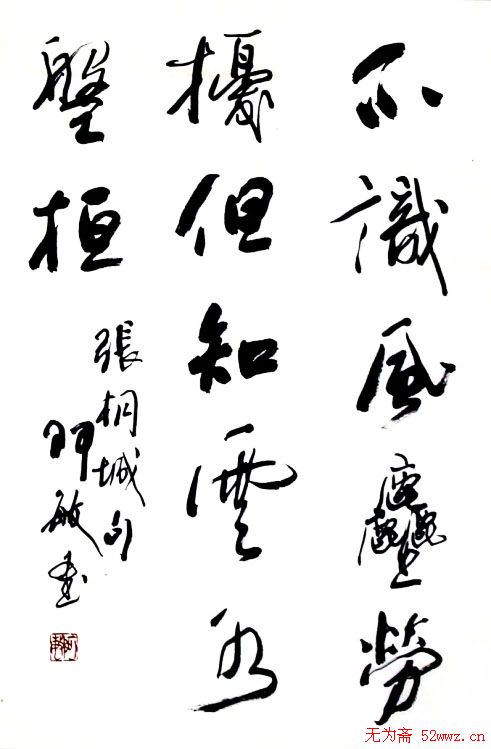 不識風塵勞
擾但知雲水
盤桓
張桐城句
敏書
无为斋 52wwz.cn